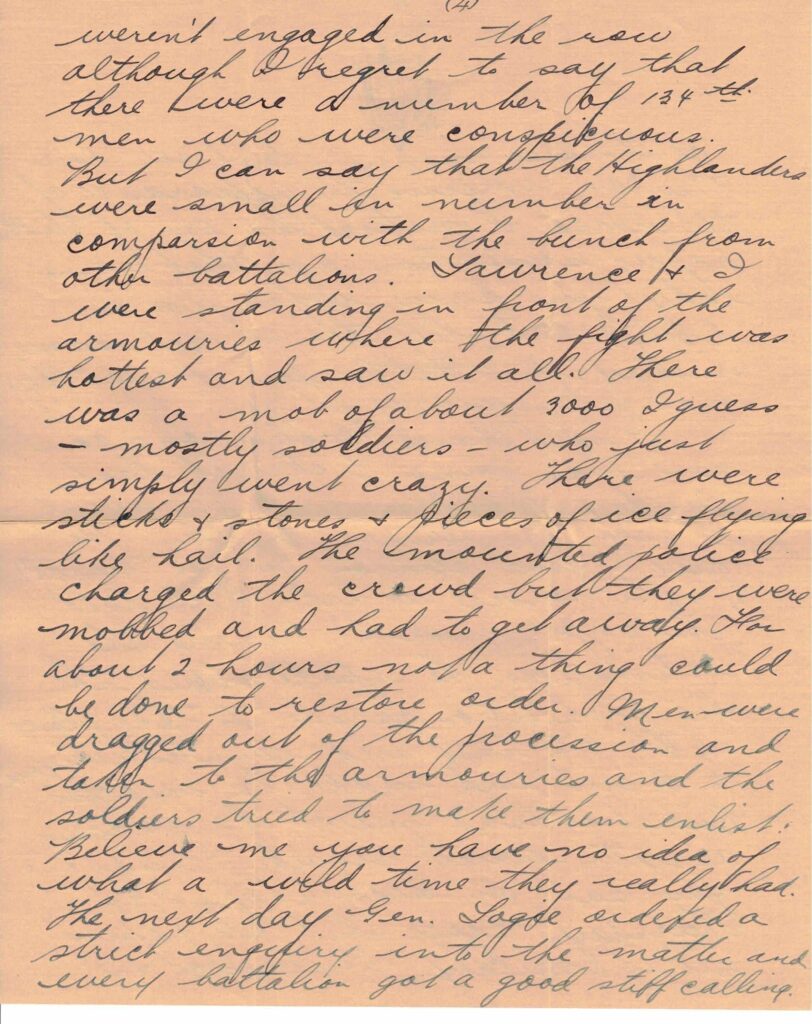 (4)
weren't engaged in the row
although I regret to say that
there were a number of 134th
men who were conspicuous.
But I can say that the Highlanders
were small in number in
comparsion with the bunch from
other battalions. Lawrence & I
were standing in front of the
armouries where the fight was
hottest and saw it all. There
was a mob of about 3000 I guess
- mostly soldiers - who just
simply went crazy. There were
sticks & stones & pieces of ice flying
like hail. The mounted police
charged the crowd but they were
mobbed and had to get away. For
about 2 hours not a thing could
be done to restore order. Men were
dragged out of the procession and
taken to the armouries and the
soldiers tried to make them enlist.
Believe me you have no idea of
what a wild time they really had.
The next day Gen. Logie ordered a
strict enquiry into the matter and
every battalion got a good stiff calling.